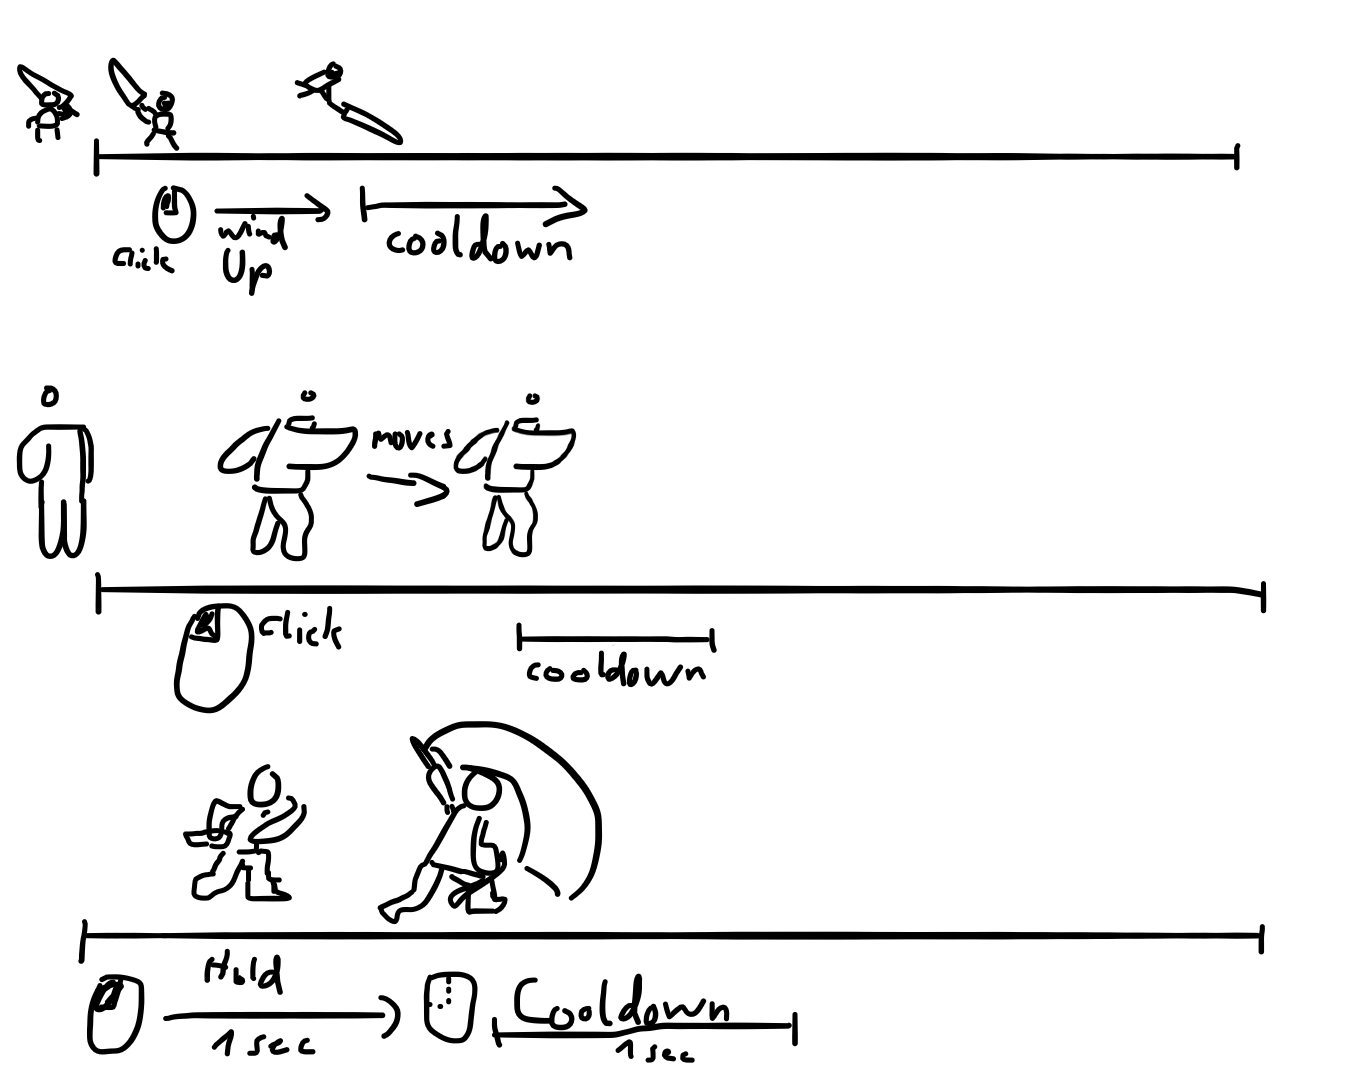 click
wind
Up
cooldown
moves
click
cooldown
Hold
1 sec
Cooldown
1 sec